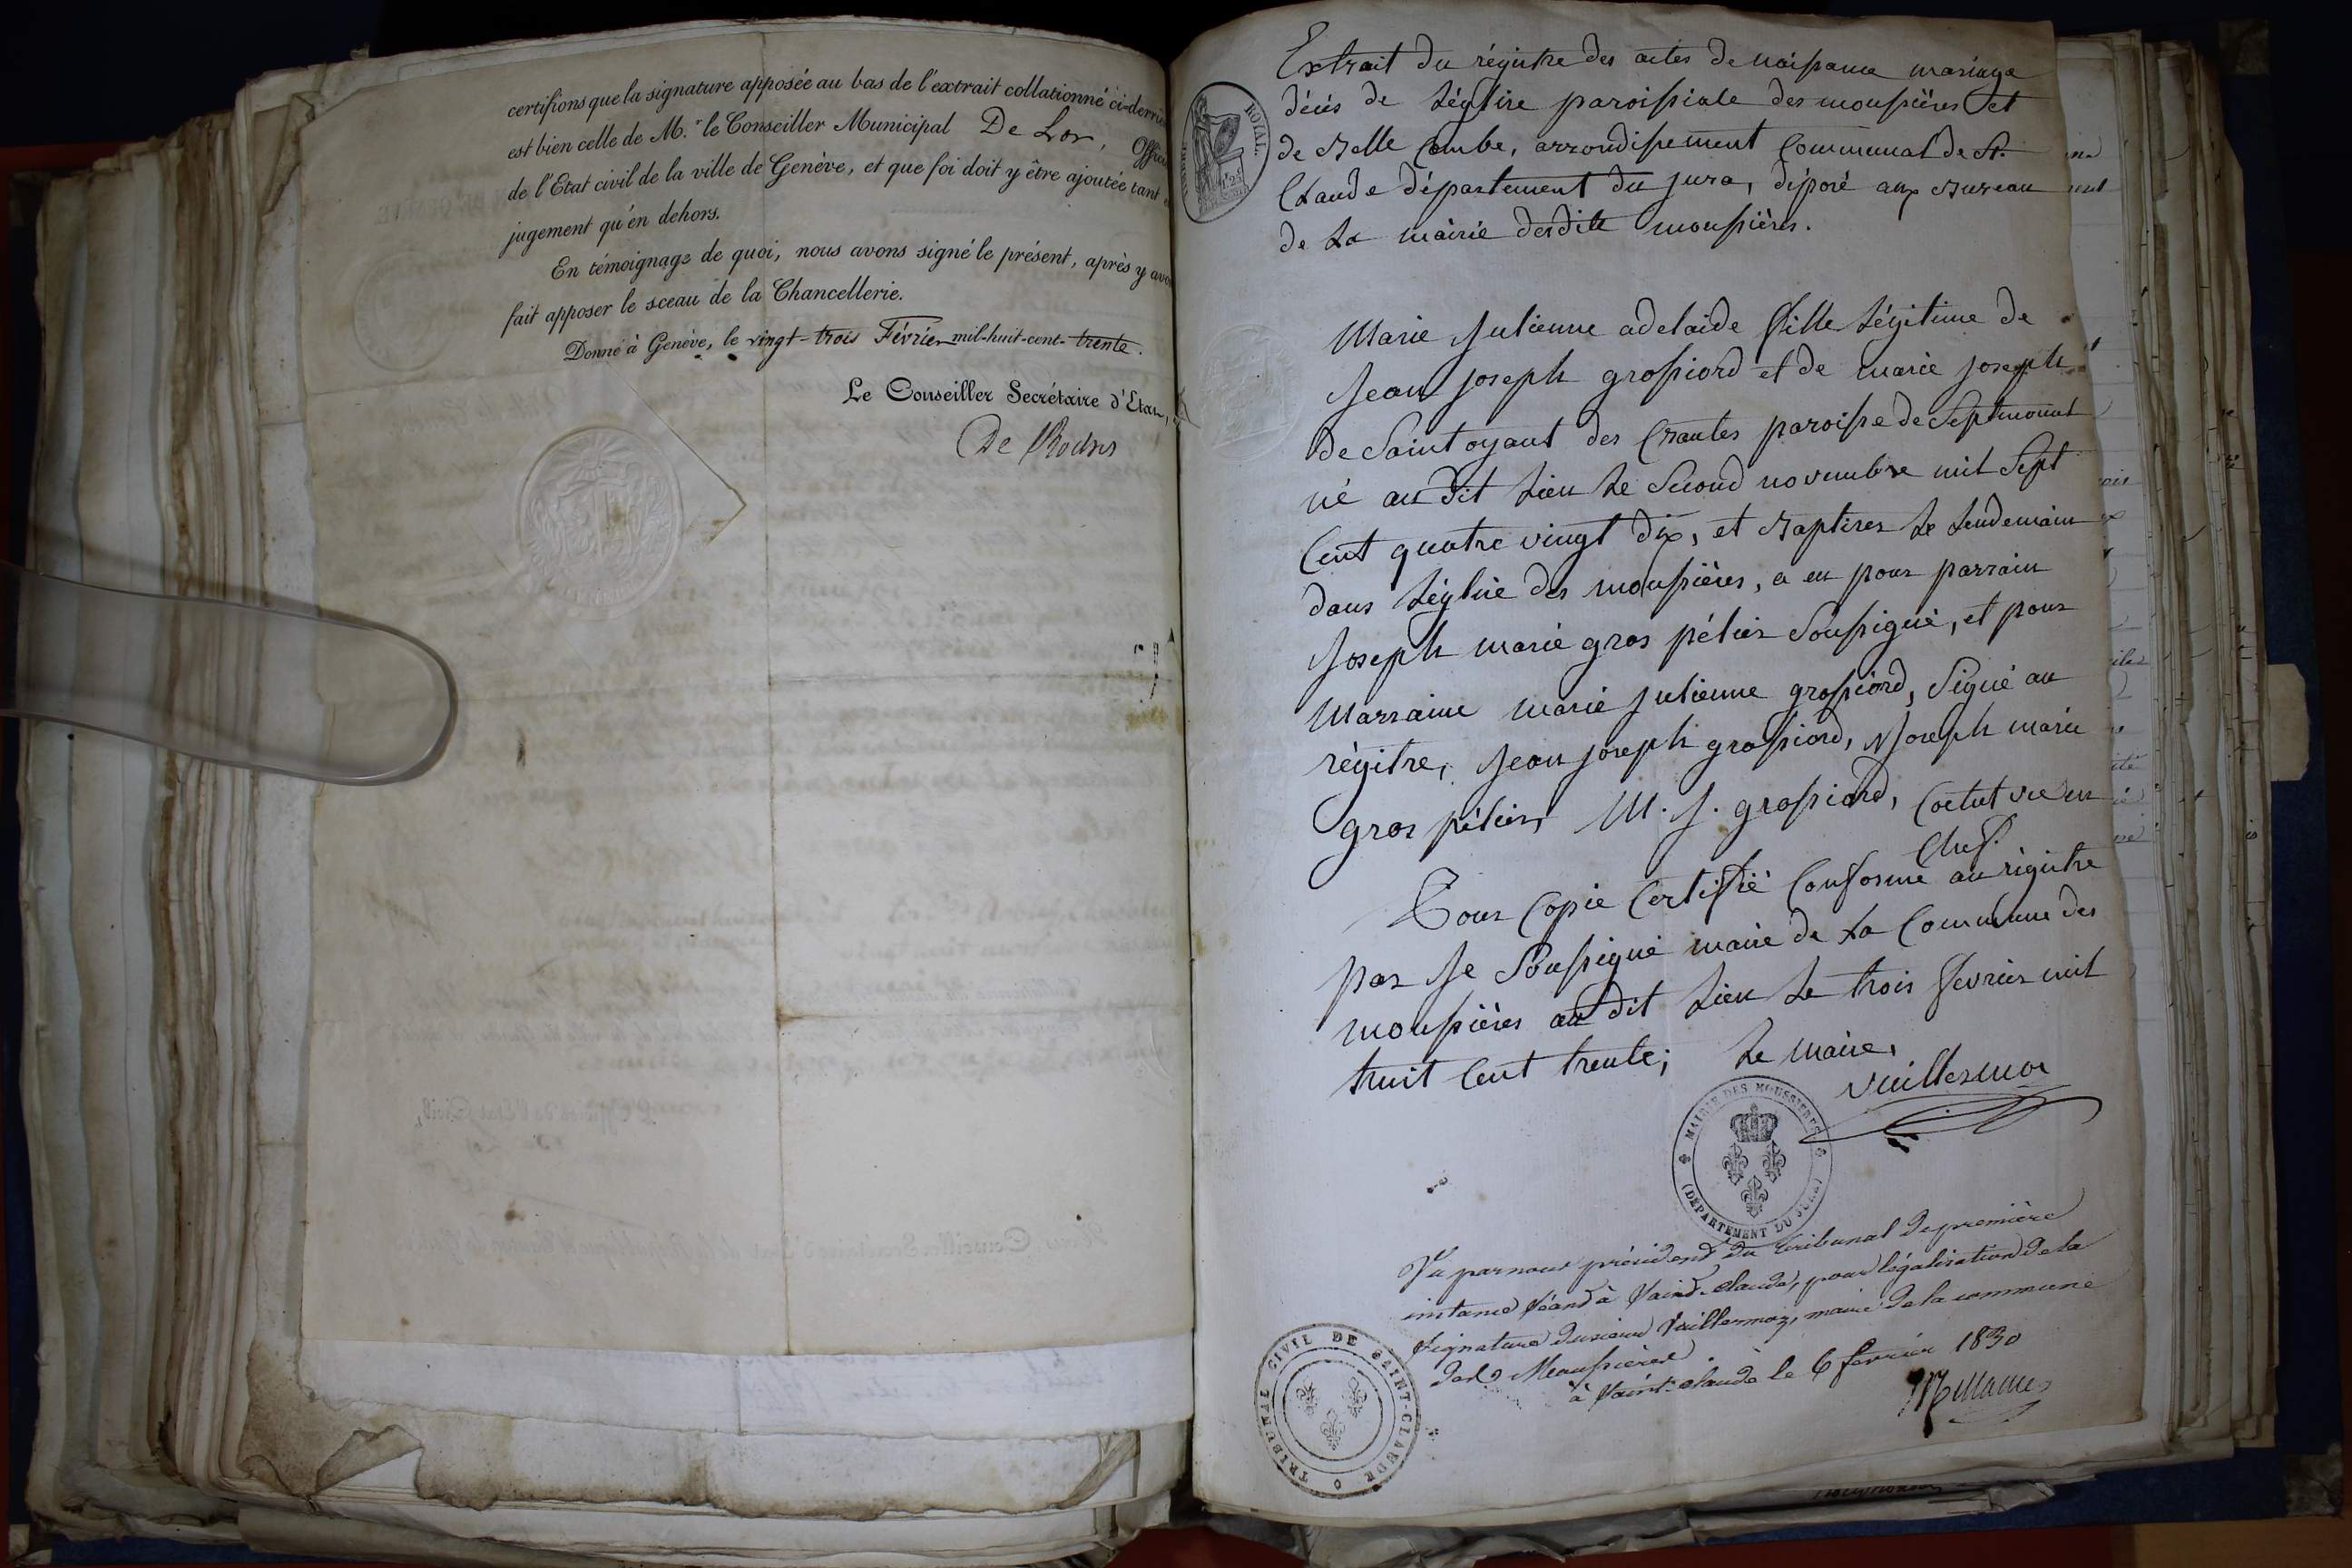 certifions que la signature apposée au bas de l'extrait collationné ci-derri
est bien celle de M.r le Conseiller Municipal De Lor, Offici
de l'Etat civil de la ville de Genève, et que foi doit y être ajoutée tant e
jugement qu'en dehors.
En témoignage de quoi, nous avons signé le présent, après y avo
fait apposer le sceau de la Chancellerie.
Donné à Genève, le vingt-trois Février mil-huit-cent-trente.
Le Conseiller Secrétaire d'Etat,
De Roches
Extrait du régistre des actes de naissance mariage
décés de Léglise paroissiale des moussières et
de Belle Combe, arrondissement Communal de St.
Claude département du jura, déposé aux Bureau
de La mairie desdite moussières.
ROYAL.
Marie Julienne adelaide fille Légitime de
Jean joseph grossiord et de marie joseph
de Saint oyant des Crautes paroisse de Septmoncel
né au dit Lieu Le Second novembre mil Sept
Cent quatre vingt dix, et Baptises Le Lendemain
dans Léglise des moussières, a eu pour parrain
Joseph marie gros pélier Soussigné, et pour
Marraine marie julienne grossiord, Signé au
régitre, Jean joseph grossiord, Joseph marie
gros pélier, M. J. grossiord, vic en
Chef.
Pour Copie Certifié Conforme au régistre
par Je Soussigné maire de La Commune des
moussières au dit Lieu Le trois fevrier mil
huit Cent trente; Le Maire,
Vuillermoz
MAIRIE DES MOUSSIERES
(DÉPARTEMENT DU JURA)
Vu par nous président du tribunal de première
instance séant à Saint-Claude, pour légalisation de la
signature du sieur Vuillermoz, maire de la commune
des Moussières.
à Saint-Claude le 6 février 1830
TRIBUNAL CIVIL DE SAINT-CLAUDE